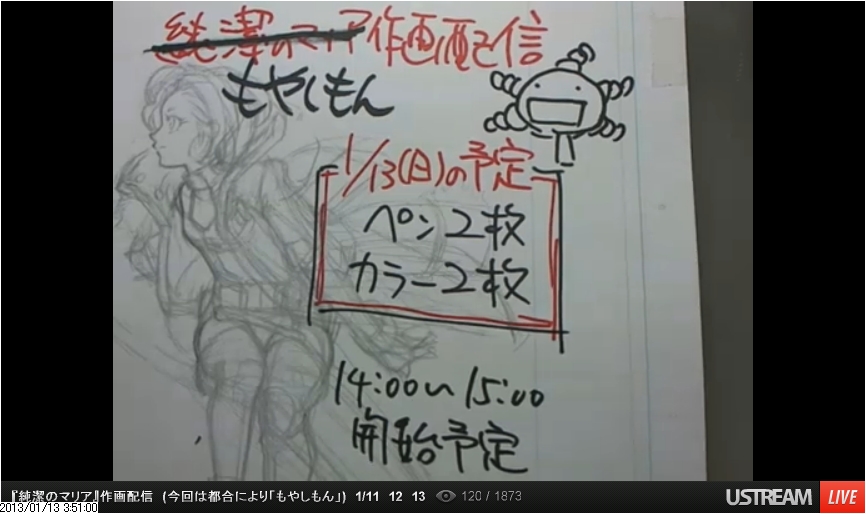 純潔のマリア作画配信
もやしもん
1/13(日)の予定
ペン2枚
カラー2枚
14:00~15:00
開始予定
『純潔のマリア』作画配信 (今回は都合により「もやしもん」) 1/11 12 13 120 / 1873 USTREAM LIVE
2013/01/13 3:51:00